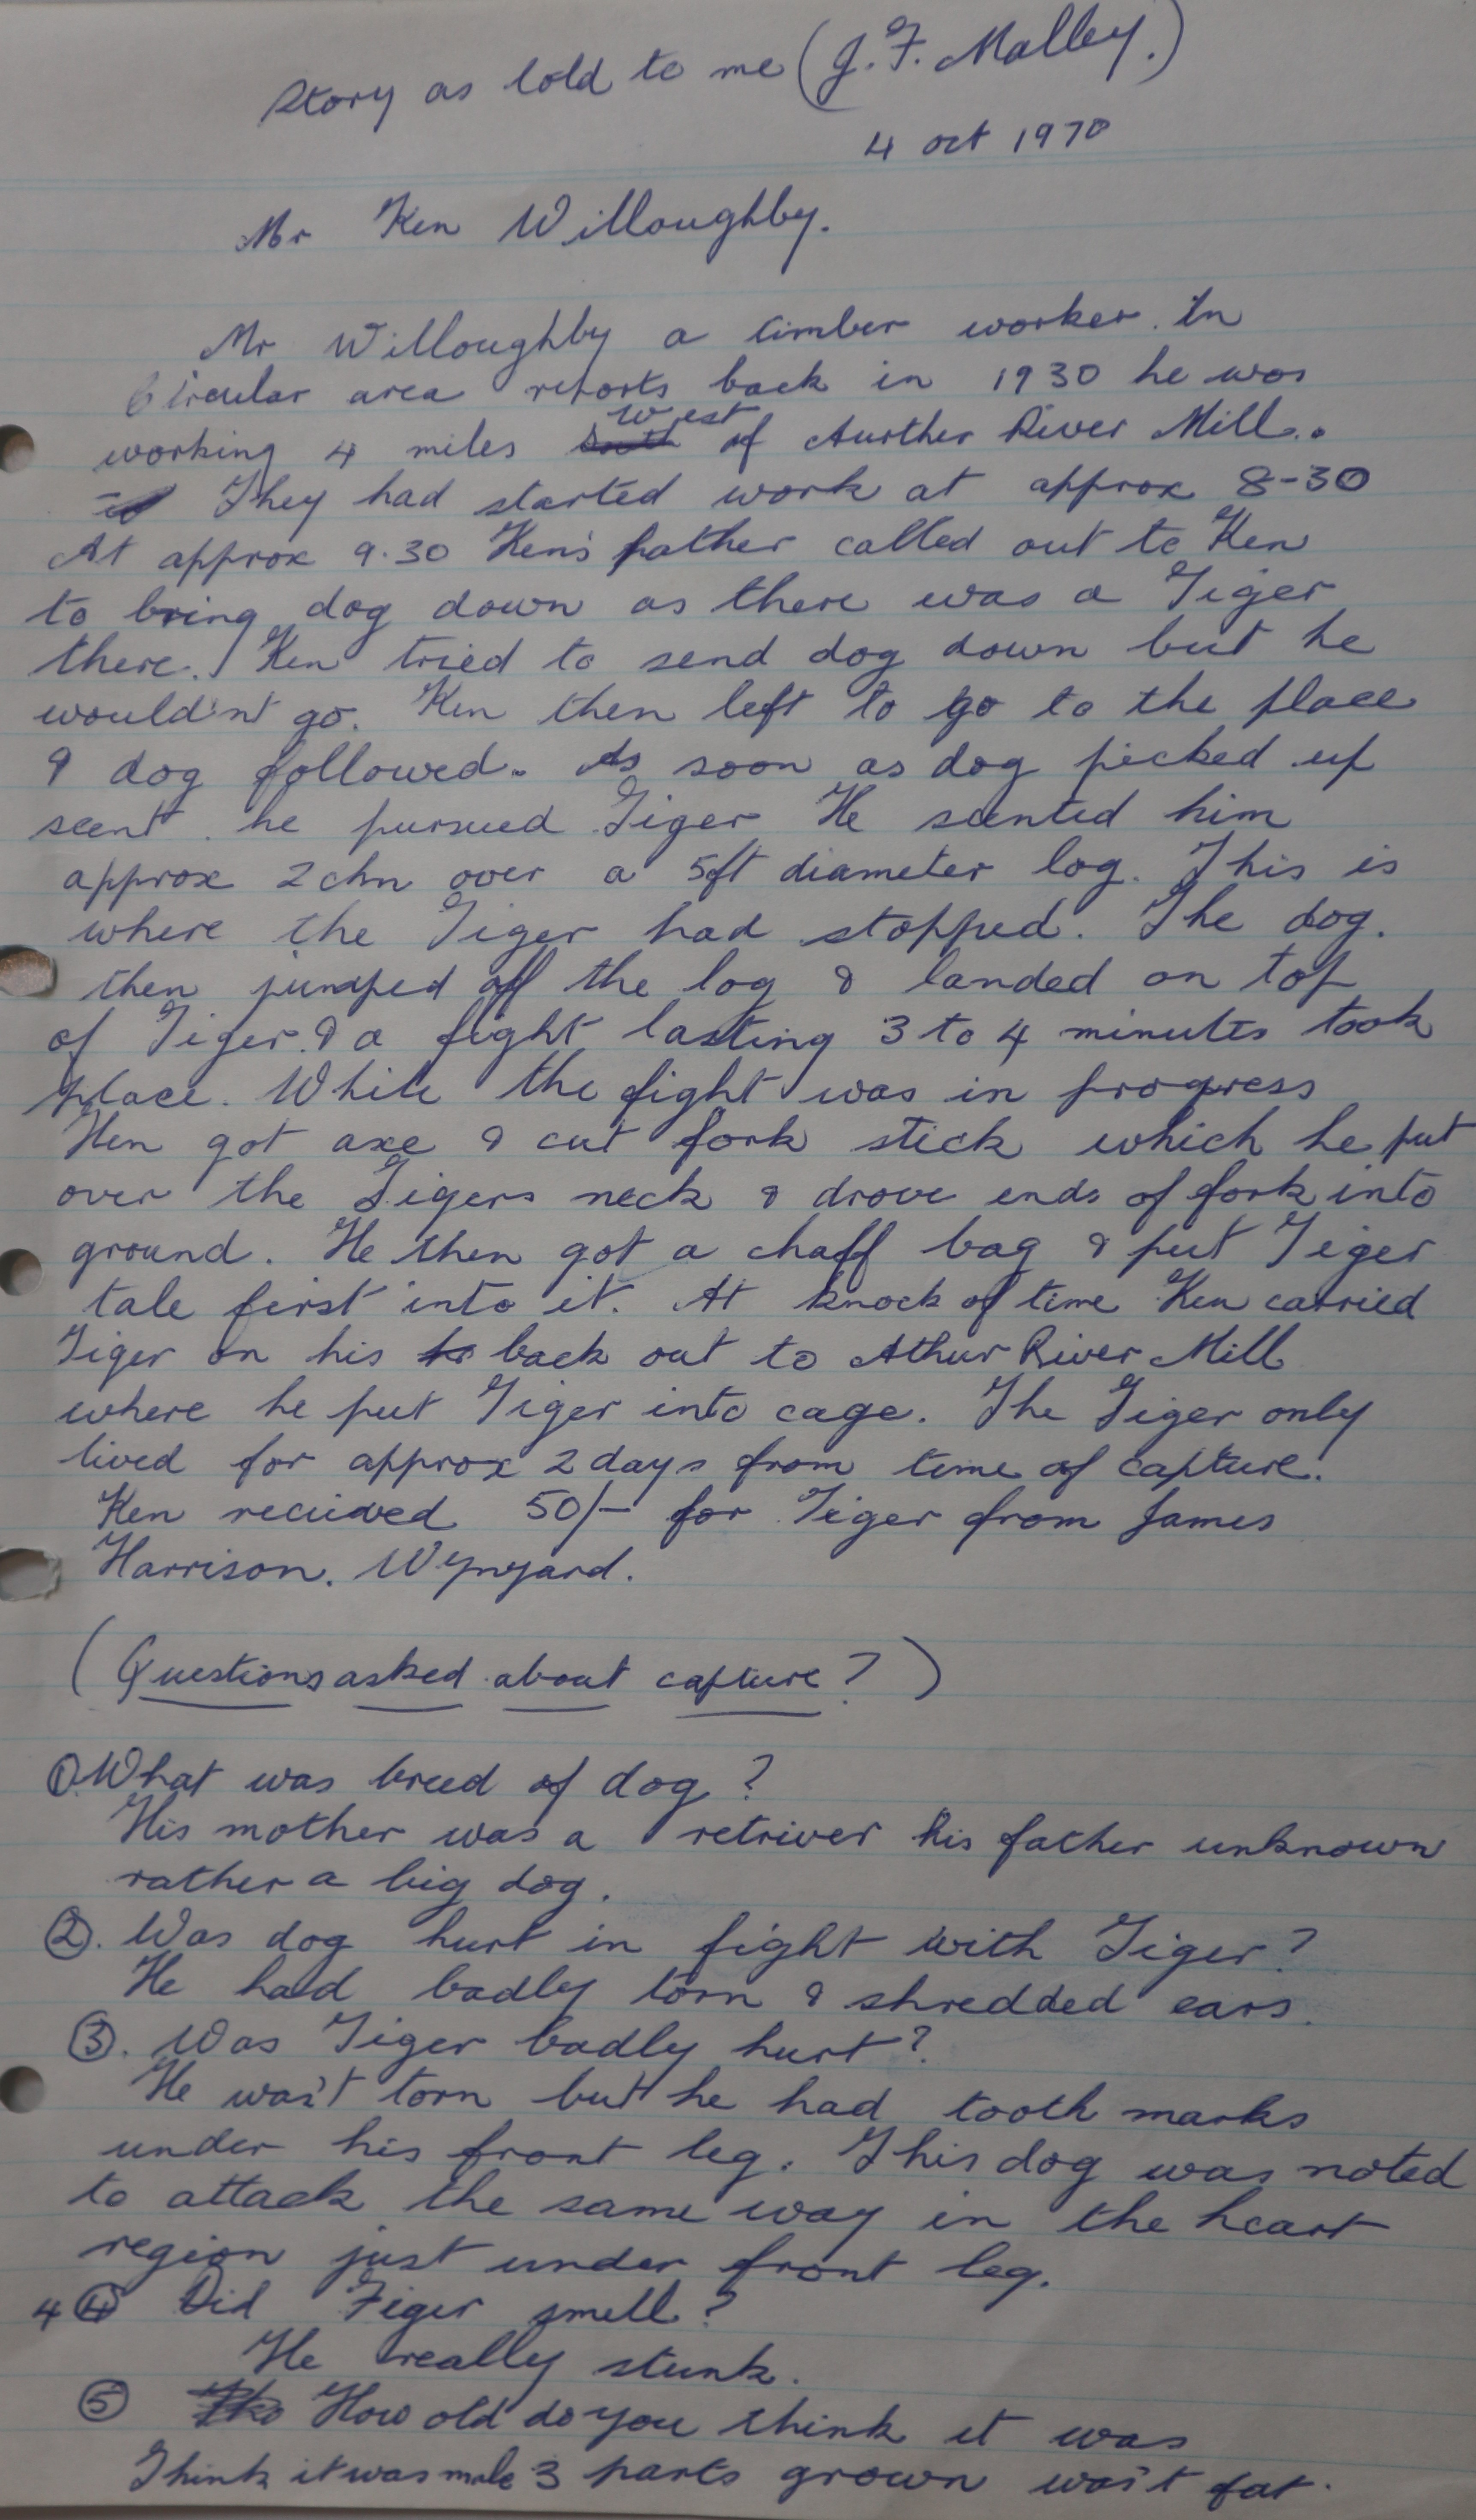 Story as told to me (J. F. Malley.)
4 Oct 1970
Mr Ken Willoughby.
Mr Willoughby a timber worker in
Circular area reports back in 1930 he was
working 4 miles west of Aurther River Mill.
They had started work at approx 8-30
At approx 9.30 Ken's father called out to Ken
to bring dog down as there was a Tiger
there. Ken tried to send dog down but he
would'nt go. Ken then left to go to the place
& dog followed. As soon as dog picked up
scent he pursued Tiger He scented him
approx 2 chn over a 5ft diameter log. This is
where the Tiger had stopped. The dog.
then jumped off the log & landed on top
of Tiger & a fight lasting 3 to 4 minutes took
place. While the fight was in progress
Ken got axe & cut fork stick which he put
over the Tigers neck & drove ends of fork into
ground. He then got a chaff bag & put Tiger
tale first into it. At knock of time Ken carried
Tiger on his back out to Athur River Mill
where he put Tiger into cage. The Tiger only
lived for approx 2 days from time of capture.
Ken recieved 50/- for Tiger from James
Harrison. Wynyard.
(Questions asked about capture?)
1. What was breed of dog?
His mother was a retriver his father unknown
rather a big dog.
2. Was dog hurt in fight with Tiger?
He had badly torn & shredded ears.
3. Was Tiger badly hurt?
He was't torn but he had tooth marks
under his front leg. This dog was noted
to attack the same way in the heart
region just under front leg.
4 4 Did Tiger smell?
He really stunk.
5 How old do you think it was
Think it was male 3 parts grown was't fat.